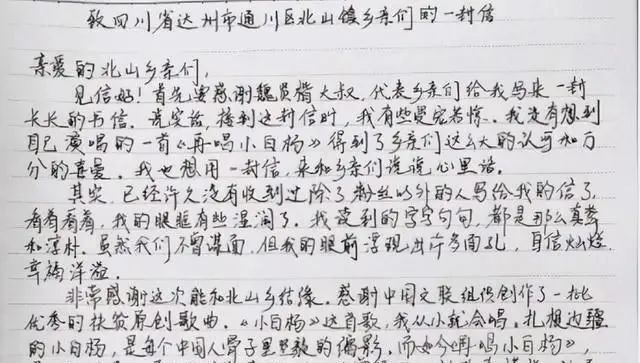 致四川省达州市通川区北山镇乡亲们的一封信
亲爱的北山乡亲们,
见信好!首先要感谢魏贤楷大叔,代表乡亲们给我写来一封
长长的书信。说实话,接到这封信时,我有些受宠若惊。我没有想到
自己演唱的一首《再唱小白杨》得到了乡亲们这么大的认可和万
分的喜爱。我也想用一封信,来和乡亲们说说心里话。
其实,已经许久没有收到过除了粉丝以外的人写给我的信了,
看着看着,我的眼眶有些湿润了。我读到的字字句句,都是那么真挚
和淳朴。虽然我们不曾谋面,但我的眼前浮现出许多面孔,自信灿烂,
幸福洋溢。
非常感谢这次能和北山乡结缘。感谢中国文联组织创作了一批
优秀的扶贫原创歌曲。《小白杨》这首歌,我从小就会唱。扎根边疆
的小白杨,是每个中国人骨子里坚毅的偶影。而如今《再唱小白杨》,